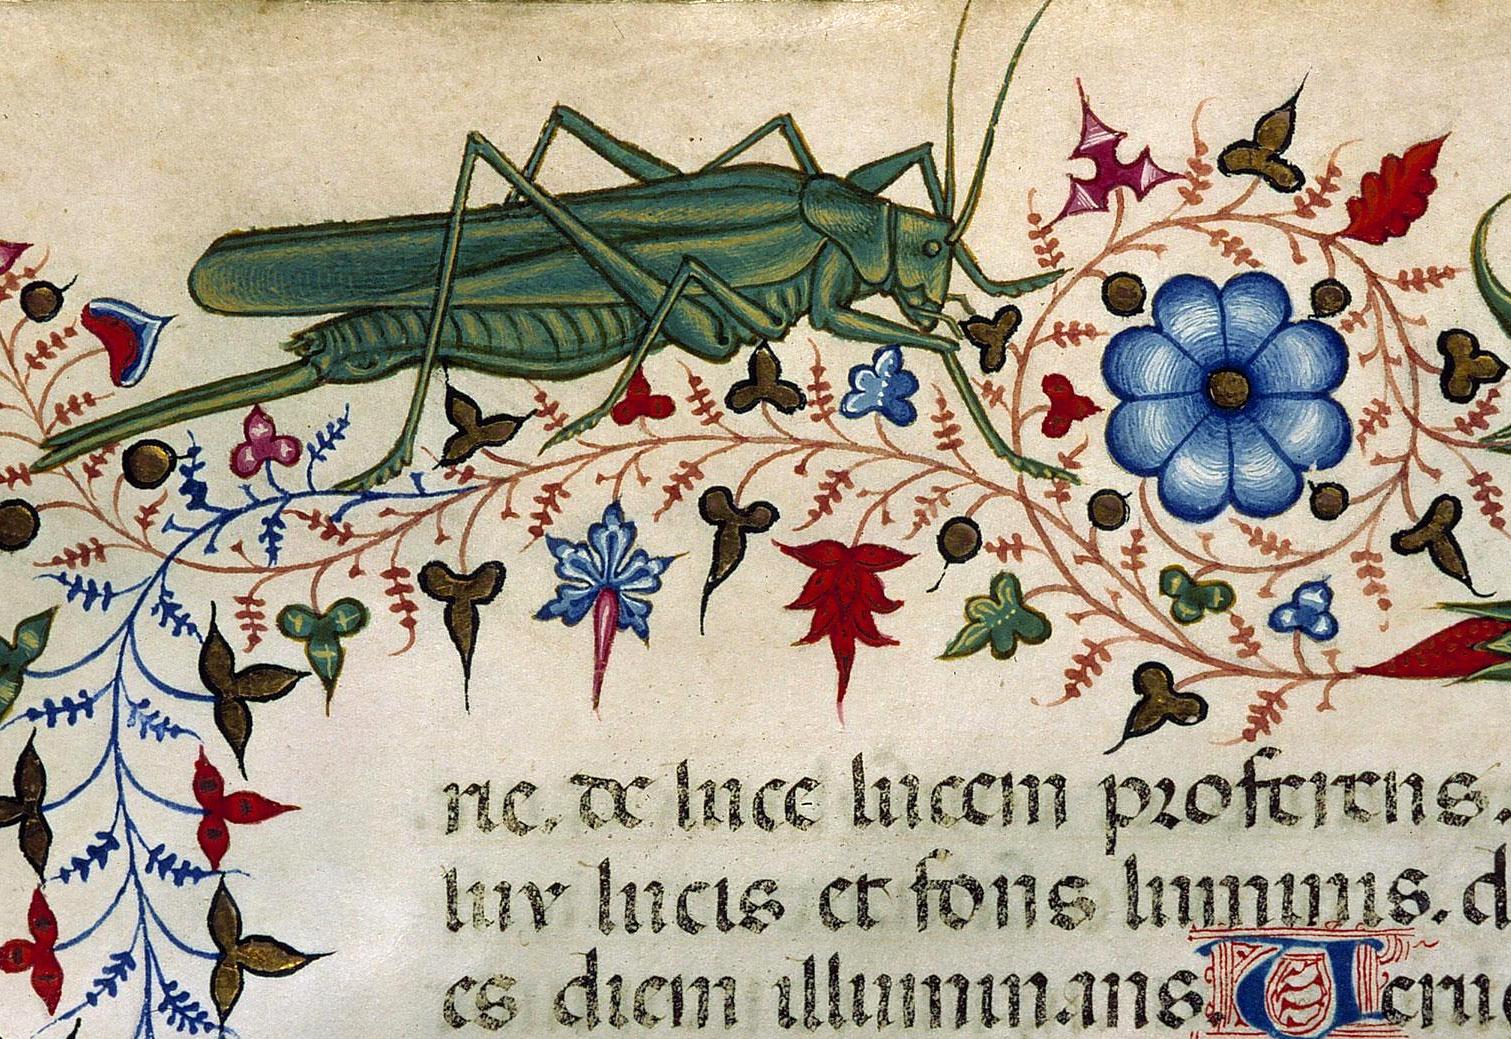 rie. de luce lucem proferens.
lux lucis et fons luminis. d
es diem illuminans. Veru